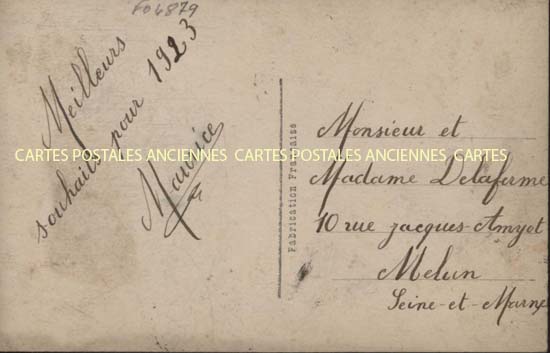 FO4879
Meilleurs
souhaits pour 1923
Maurice
Fabrication Française
Monsieur et
Madame Delaferme
10 rue jacques-Amyot
Melun
Seine-et-Marne
CARTES POSTALES ANCIENNES CARTES POSTALES ANCIENNES CARTES